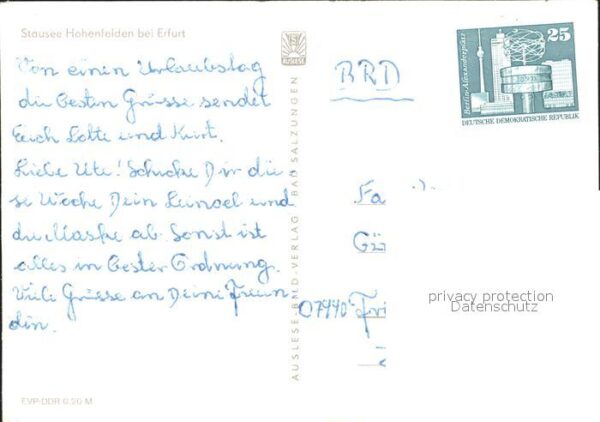 Stausee Hohenfelden bei Erfurt
Von einen Urlaubstag
die besten Grüsse sendet
Euch Lotte und Kurt.
Liebe Ute! Schicke Dir die
se Woche Dein Leinoel und
die Maske ab. Sonst ist
alles in bester Ordnung.
Viele Grüsse an Deine Freun
din.
EVP-DDR 0.20 M
AUSLESE
AUSLESE-BILD-VERLAG BAD SALZUNGEN
BRD
25
Berlin, Alexanderplatz
DEUTSCHE DEMOKRATISCHE REPUBLIK
Fa
Gü
07440 Fri
privacy protection
Datenschutz